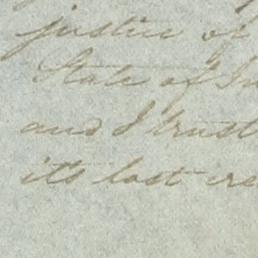 justice of
State of In
and I trust
its last cre